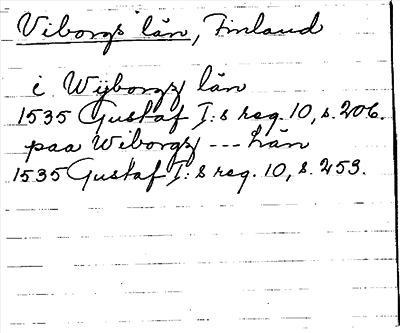 Viborgs län, Finland
i Wijborgz län
1535 Gustaf I:s reg. 10, s. 206.
paa Wiborgz --- hän
1535 Gustaf I:s reg. 10, s. 253.